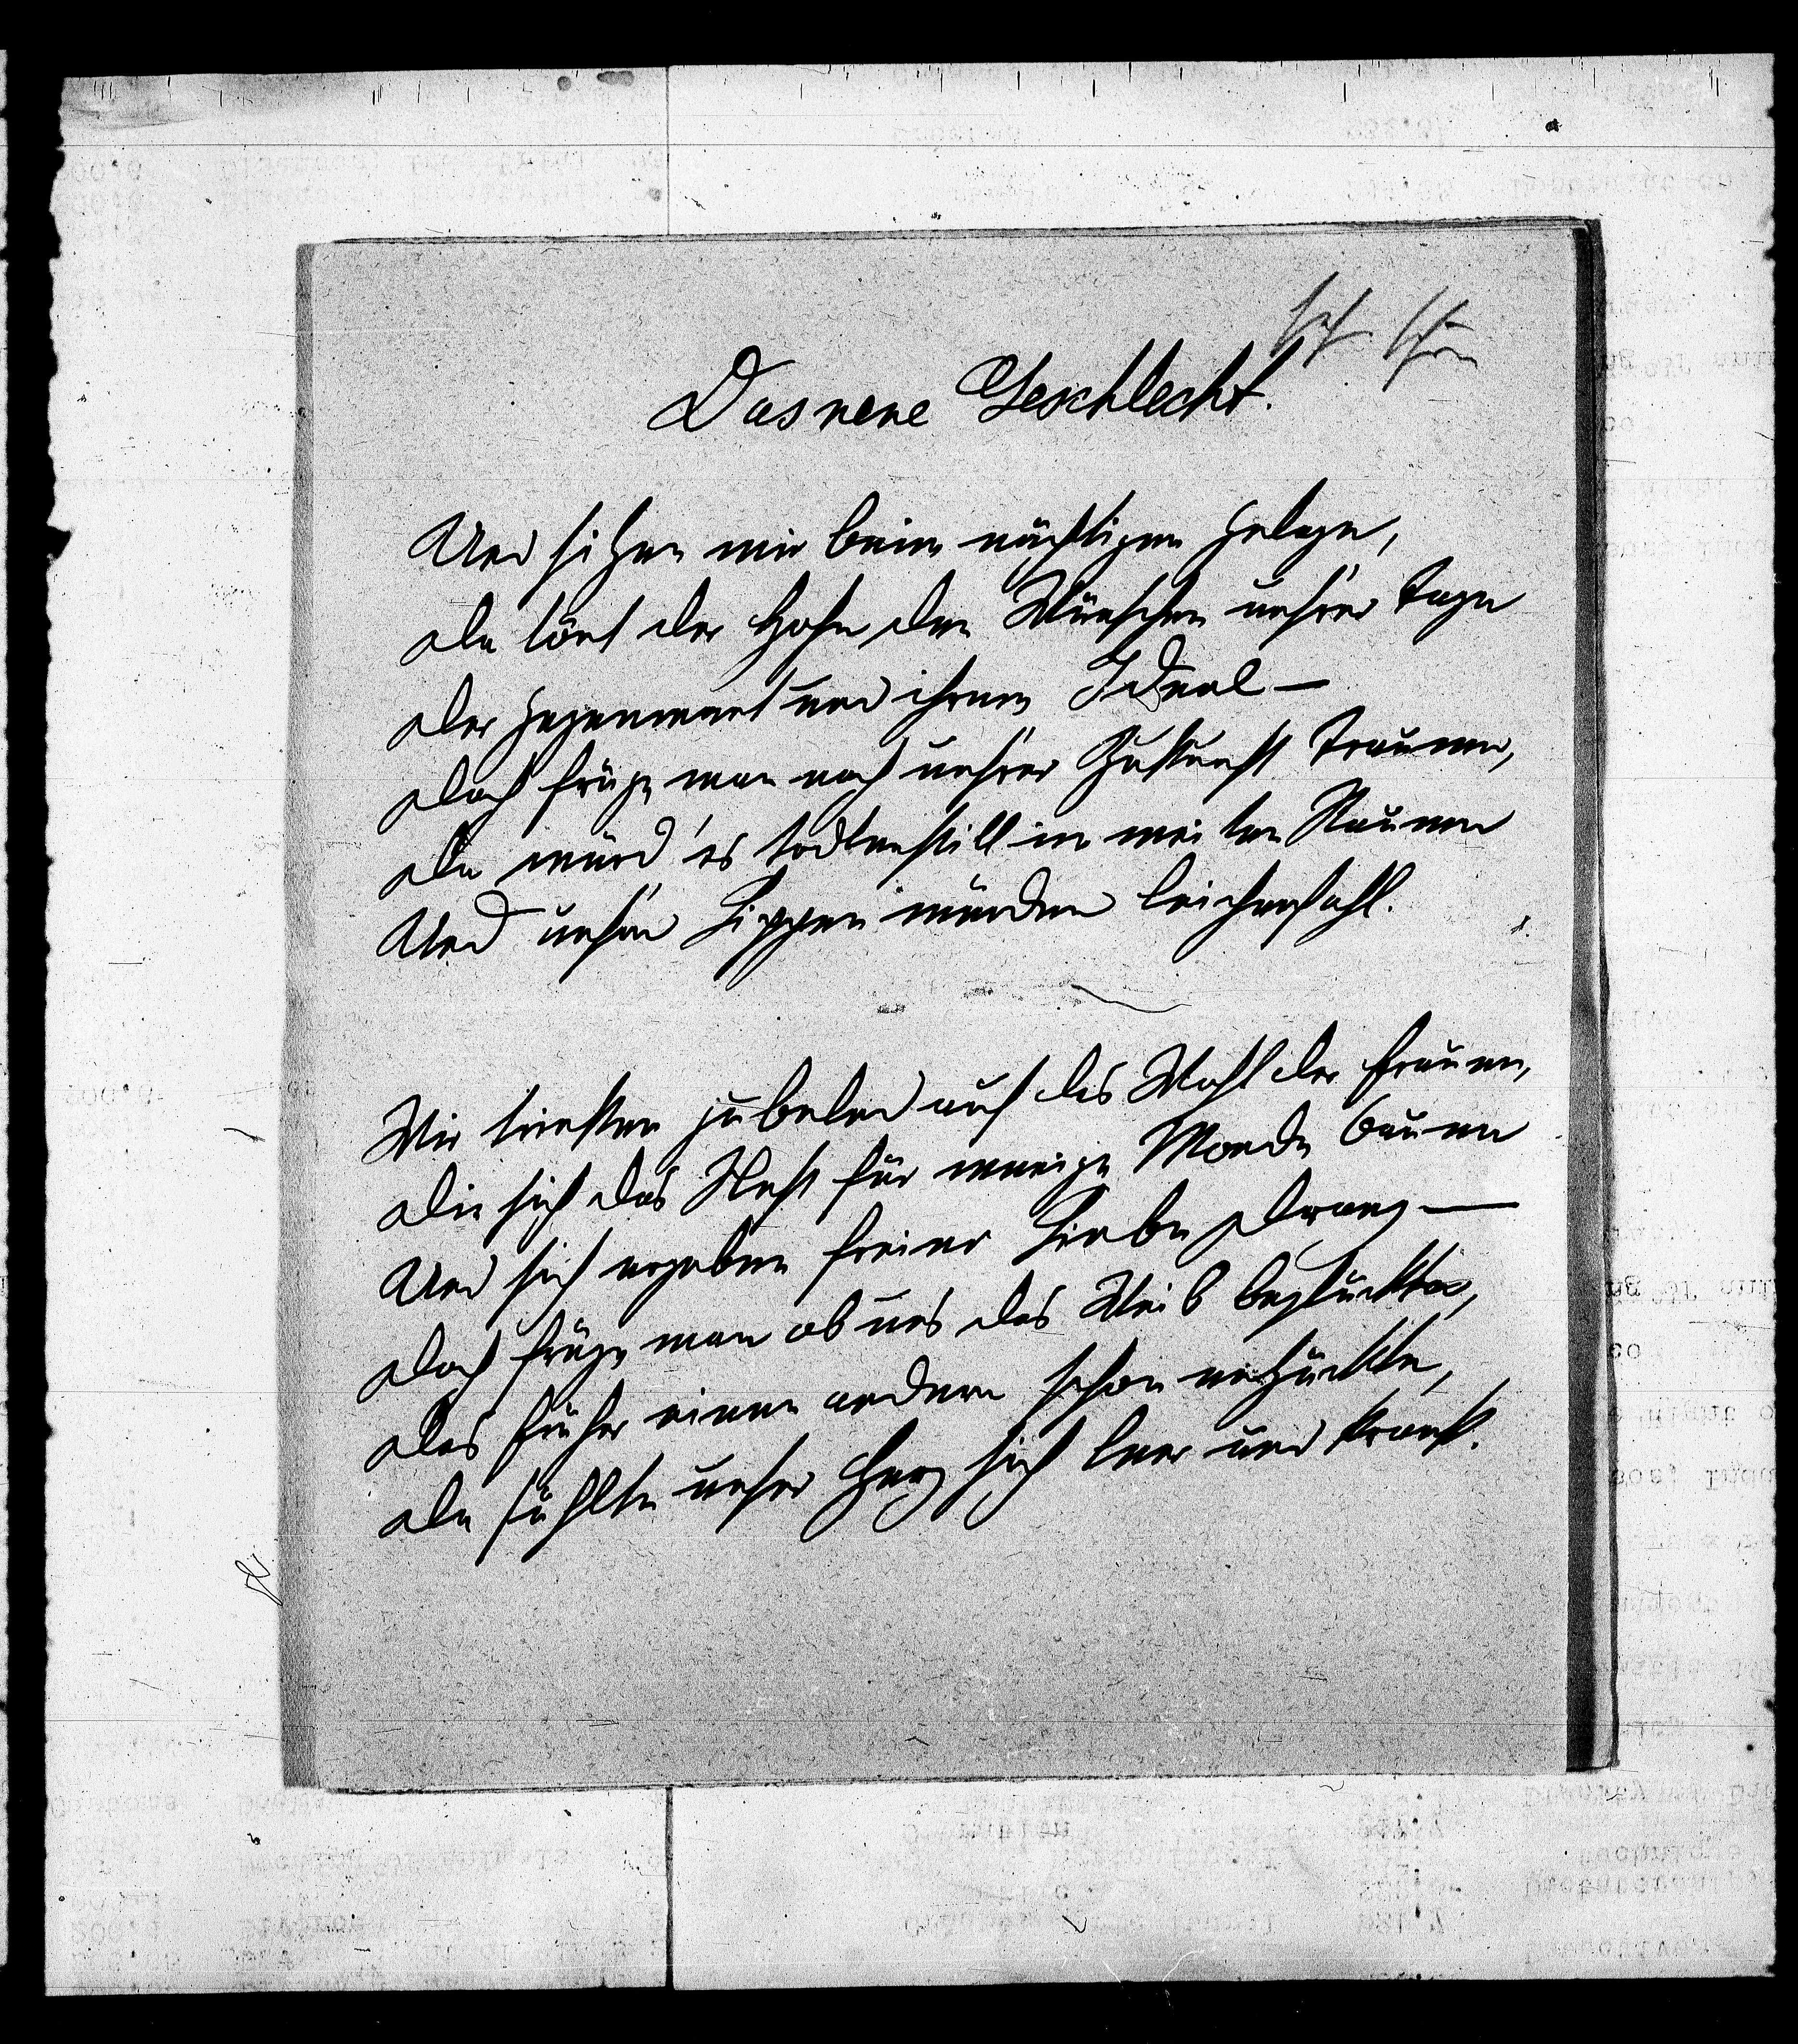 sehr schön
Das neue Geschlecht.
Und sitzen wir beim nächtigen Gelage,
Da tönt der Hohn den Wünschen unsrer Tage
Der Gegenwart und ihrem Ideal —
Doch früge man nach unsrer Zukunft Träumen,
Da würd' es todtenstill in weiten Räumen
Und unsre Lippen würden leichenfahl.
Wir trinken jubelnd auf das Wohl der Frauen,
Die sich das Nest für wenige Monde bauen
Und sich ergeben freier Liebe Drang —
Doch früge man ob uns das Weib beglückte,
Das früher einen andern schon entzückte,
Da fühlte unser Herz sich leer und krank.